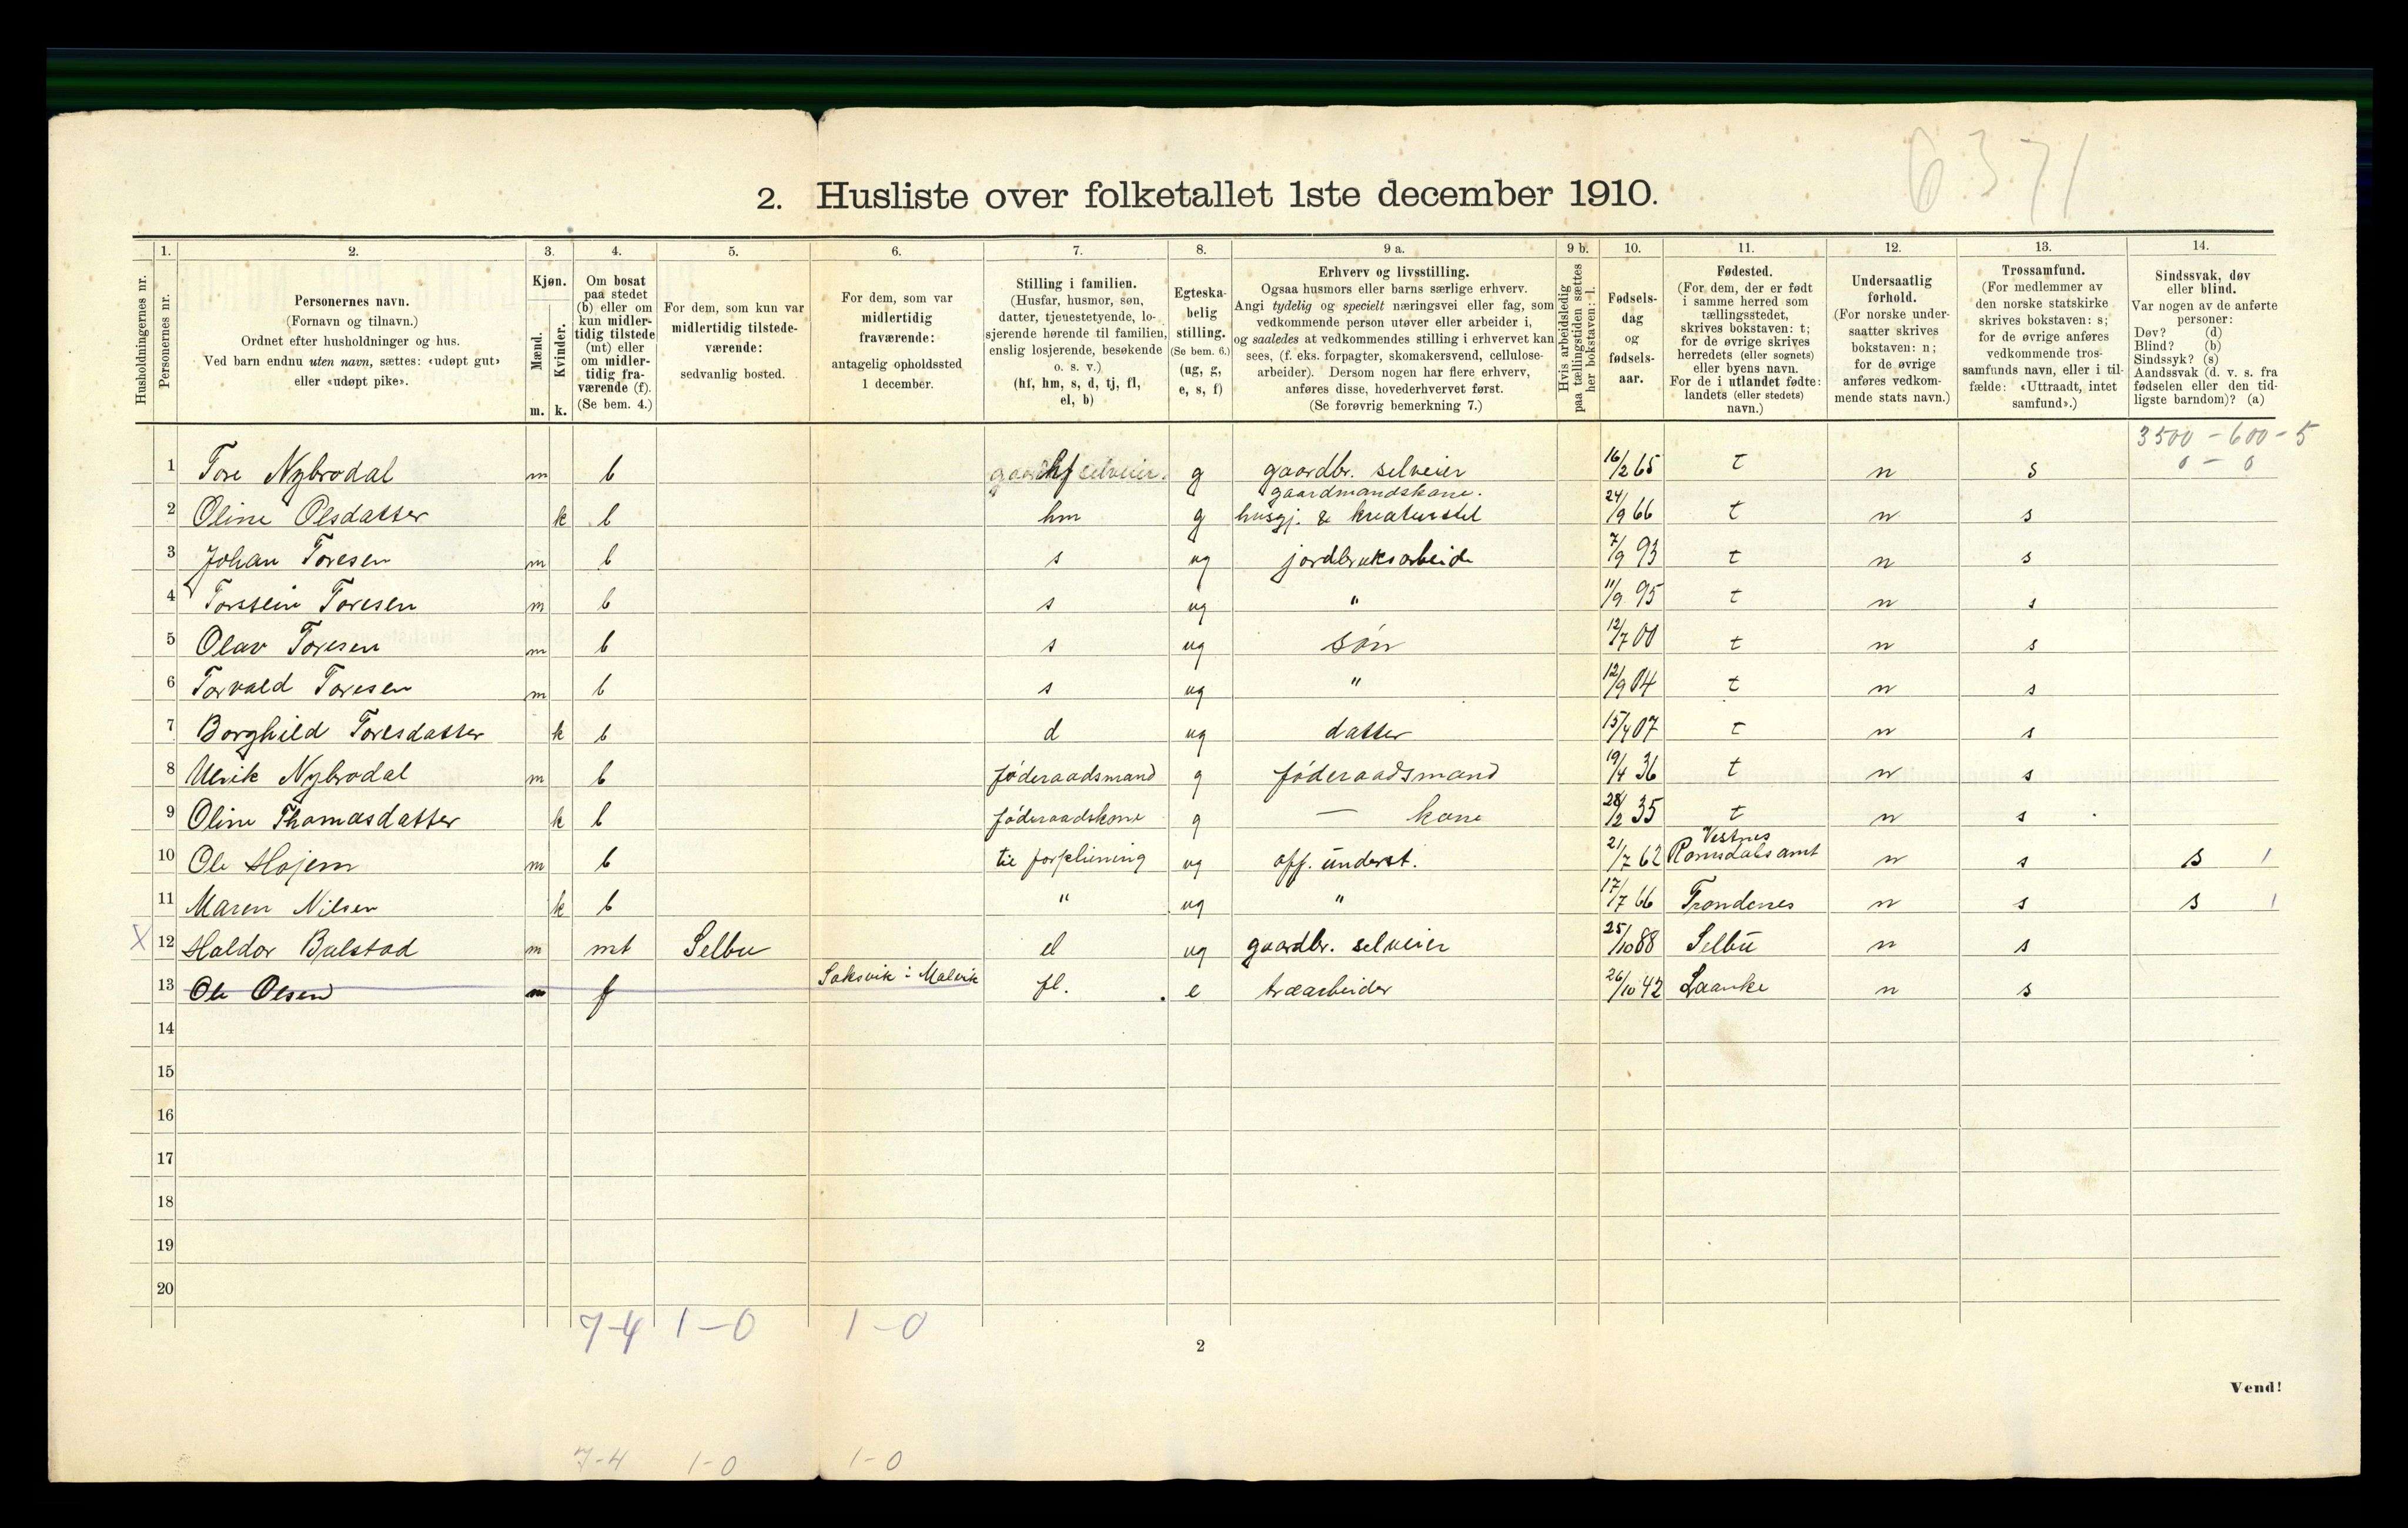 6371
2. Husliste over folketallet 1ste december 1910.
Husholdningernes nr.
1.
Personernes nr.
2.
Personernes navn.
(Fornavn og tilnavn.)
Ordnet efter husholdninger og hus.
Ved barn endnu uten navn, sættes: «udøpt gut»
eller «udøpt pike».
3.
Kjøn.
Mænd.
Kvinder.
m. k.
4.
Om bosat
paa stedet
(b) eller om
kun midler-
tidig tilstede
(mt) eller
om midler-
tidig fra-
værende (f).
(Se bem. 4.)
5.
For dem, som kun var
midlertidig tilstede-
værende:
sedvanlig bosted.
6.
For dem, som var
midlertidig
fraværende:
antagelig opholdssted
1 december.
7.
Stilling i familien.
(Husfar, husmor, søn,
datter, tjenestetyende, lo-
sjerende hørende til familien,
enslig losjerende, besøkende
o. s. v.)
(hf, hm, s, d, tj, fl,
el, b)
8.
Egteska-
belig
stilling.
(Se bem. 6.)
(ug, g,
e, s, f)
9 a.
Erhverv og livsstilling.
Ogsaa husmors eller barns særlige erhverv.
Angi tydelig og specielt næringsvei eller fag, som
vedkommende person utøver eller arbeider i,
og saaledes at vedkommendes stilling i erhvervet kan
sees, (f. eks. forpagter, skomakersvend, cellulose-
arbeider). Dersom nogen har flere erhverv,
anføres disse, hovederhvervet først.
(Se forøvrig bemerkning 7.)
9 b.
Hvis arbeidsledig
paa tællingstiden sættes
her bokstaven: l.
10.
Fødsels-
dag
og
fødsels-
aar.
11.
Fødested.
(For dem, der er født
i samme herred som
tællingsstedet,
skrives bokstaven: t;
for de øvrige skrives
herredets (eller sognets)
eller byens navn.
For de i utlandet fødte:
landets (eller stedets)
navn.)
12.
Undersaatlig
forhold.
(For norske under-
saatter skrives
bokstaven: n;
for de øvrige
anføres vedkom-
mende stats navn.)
13.
Trossamfund.
(For medlemmer av
den norske statskirke
skrives bokstaven: s;
for de øvrige anføres
vedkommende tros-
samfunds navn, eller i til-
fælde: «Uttraadt, intet
samfund».)
14.
Sindssvak, døv
eller blind.
Var nogen av de anførte
personer:
Døv? (d)
Blind? (b)
Sindssyk? (s)
Aandssvak (d. v. s. fra
fødselen eller den tid-
ligste barndom)? (a)
3500 - 600 - 5
0 - 0
1 Tore Nybrodal m b gaardbr selveier. hf g gaardbr. selveier 16/2 65 t n s
gaardmandskone.
2 Oline Olsdatter k b hm g husgj. & kreaturstel 24/9 66 t n s
3 Johan Toresen m b s ug jordbruksarbeide 7/9 93 t n s
4 Torstein Toresen m b s ug " 11/9 95 t n s
5 Olav Toresen m b s ug søn 12/7 00 t n s
6 Torvald Toresen m b s ug " 12/9 04 t n s
7 Borghild Toresdatter k b d ug datter 15/4 07 t n s
8 Ulrik Nybrodal m b føderaadsmand g føderaadsmand 19/4 36 t n s
9 Oline Thomasdatter k b føderaadskone g — kone 28/2 35 t n s
Vestnes
10 Ole Hojem m b til forpleining ug off. underst. 21/7 62 Romsdals amt n s s 1
11 Maren Nilsen k b " ug " 17/7 66 Trondenes n s s 1
X 12 Haldor Balstad m mt Selbu el ug gaardbr. selveier 25/10 88 Selbu n s
13 Ole Olsen m f Saksvik i Malvik fl. e træarbeider 26/10 42 Laanke n s
14
15
16
17
18
19
20
7-4 1-0 1-0
2
Vend!
7-4 1-0 1-0